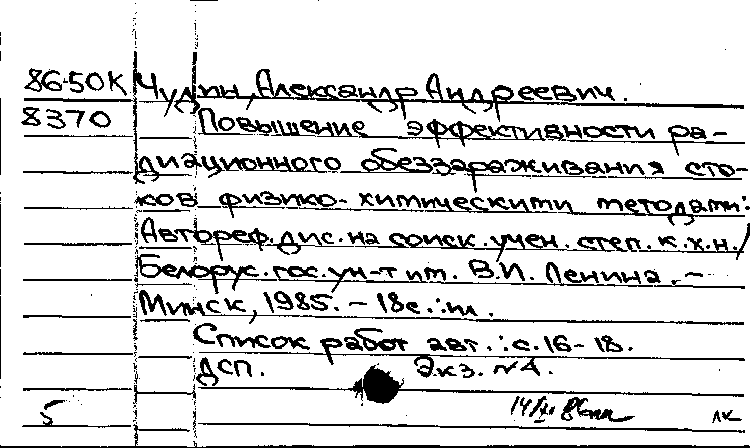 86-50К Чудин, Александр Андреевич.
8370 Повышение эффективности ра-
диационного обеззараживания сто-
ков физико-химическими методами:
Автореф. дис. на соиск. учен. степ. к.х.н./
Белорус. гос. ун-т им. В.И. Ленина. –
Минск, 1985. – 18с.: ил.
Список работ авт.: с. 16-18.
ДСП. Экз. №4.
5 ЛК